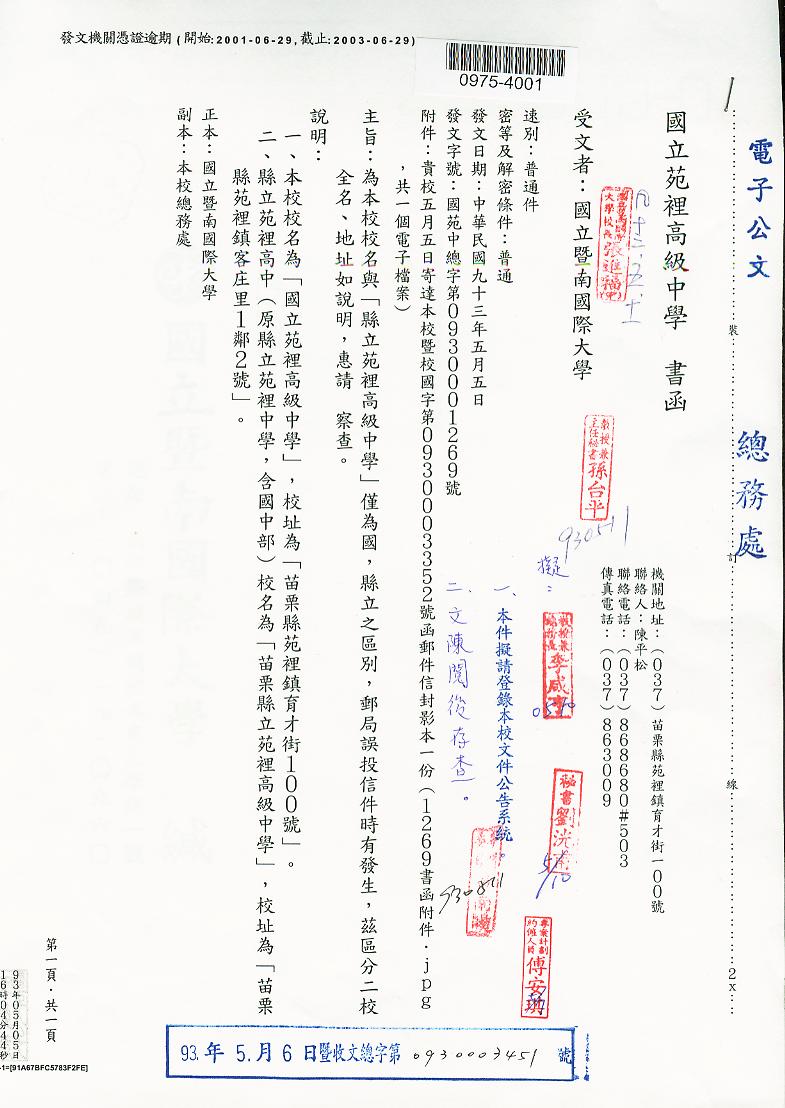 發文機關憑證逾期(開始:2001-06-29,截止:2003-06-29)
0975-4001
電子公文
總務處
裝
訂
線
2x
國立苑裡高級中學 書函
機關地址：(037)苗栗縣苑裡鎮育才街一00號
聯絡人：陳平松
聯絡電話：(037)868680#503
傳真電話：(037)863009
受文者：國立暨南國際大學
速別：普通件
密等及解密條件：普通
發文日期：中華民國九十三年五月五日
發文字號：國苑中總字第0930001269號
附件：貴校五月五日寄達本校暨校國字第0930003352號函郵件信封影本一份(1269書函附件.jpg
，共一個電子檔案)
主旨：為本校校名與「縣立苑裡高級中學」僅為國，縣立之區別，郵局誤投信件時有發生，茲區分二校
全名、地址如說明，惠請 察查。
說明：
一、本校校名為「國立苑裡高級中學」，校址為「苗栗縣苑裡鎮育才街100號」。
二、縣立苑裡高中(原縣立苑裡中學，含國中部)校名為「苗栗縣立苑裡高級中學」，校址為「苗栗
縣苑裡鎮客庄里1鄰2號」。
正本：國立暨南國際大學
副本：本校總務處
大學校長張進福
教授兼
主任秘書孫台平
930511
擬：
一、本件擬請登錄本校文件公告系統。
二、文陳閱後存查。
教授兼
總務長李咸亨
0510
秘書劉洸甫
5/10
專案計劃
約僱人員傅安琪
93.年5.月6日暨收文總字第0930003451號
第一頁．共一頁
93年05月05日
16時04分44秒
-1=[91A67BFC5783F2FE]